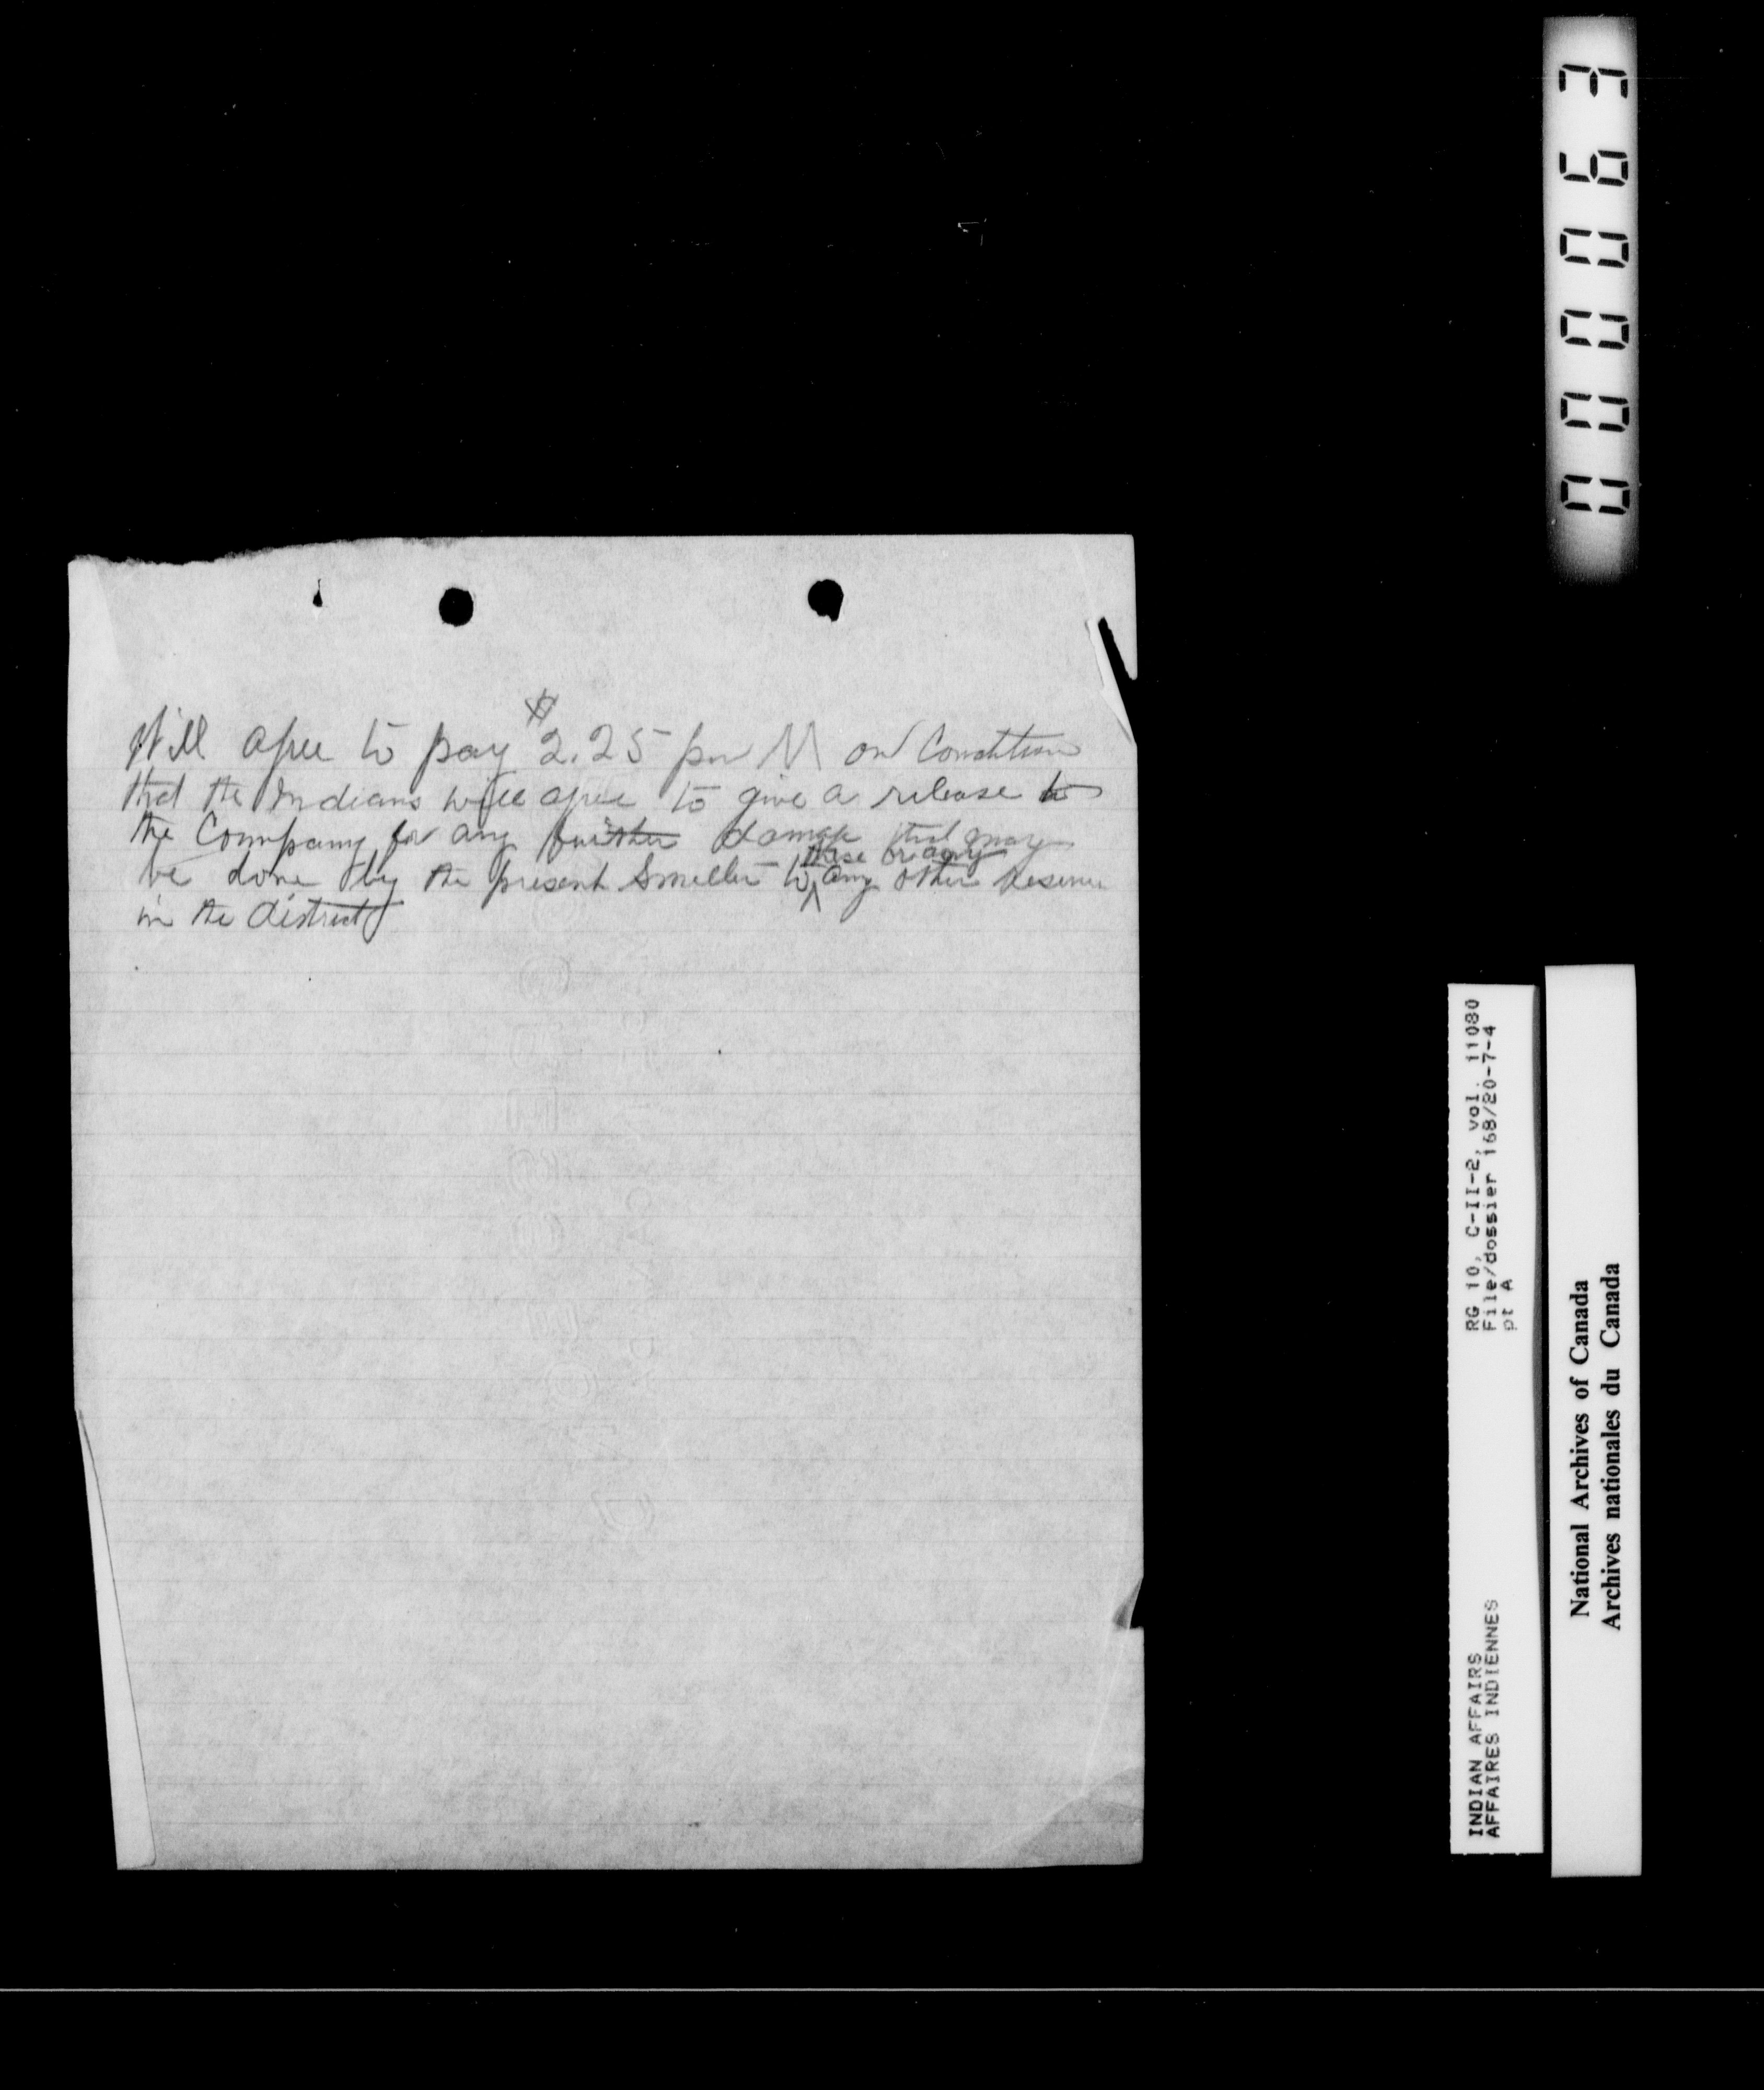 Will agree to pay $2.25 per M on Condition
that the Indians will agree to give a release to
the Company for any further damage that may
be done by the present Smelter to any other reserve
these or any
in the district
000063
RG 10, C-II-2, vol. 11080
File/dossier 168/20-7-4
pt A
INDIAN AFFAIRS
AFFAIRES INDIENNES
National Archives of Canada
Archives nationales du Canada